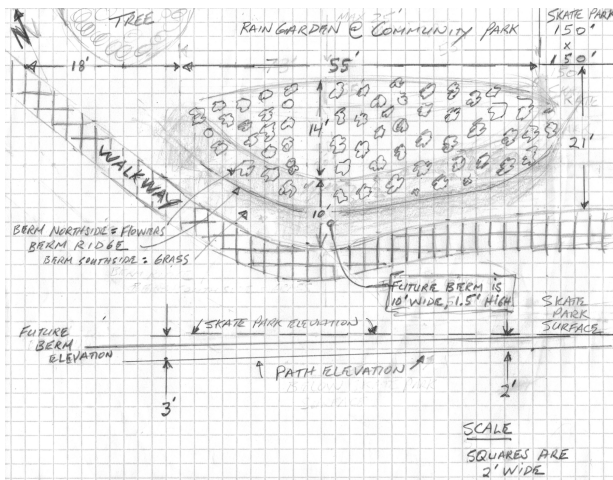 TREE
RAINGARDEN @ COMMUNITY PARK
SKATE PARK
150'
x
150'
N
18'
55'
14'
21'
WALKWAY
10'
BERM NORTHSIDE = FLOWERS
BERM RIDGE
BERM SOUTHSIDE = GRASS
FUTURE BERM IS
10' WIDE, 1.5' HIGH
SKATE PARK ELEVATION
SKATE
PARK
SURFACE
FUTURE
BERM
ELEVATION
PATH ELEVATION
3'
2'
SCALE
SQUARES ARE
2' WIDE